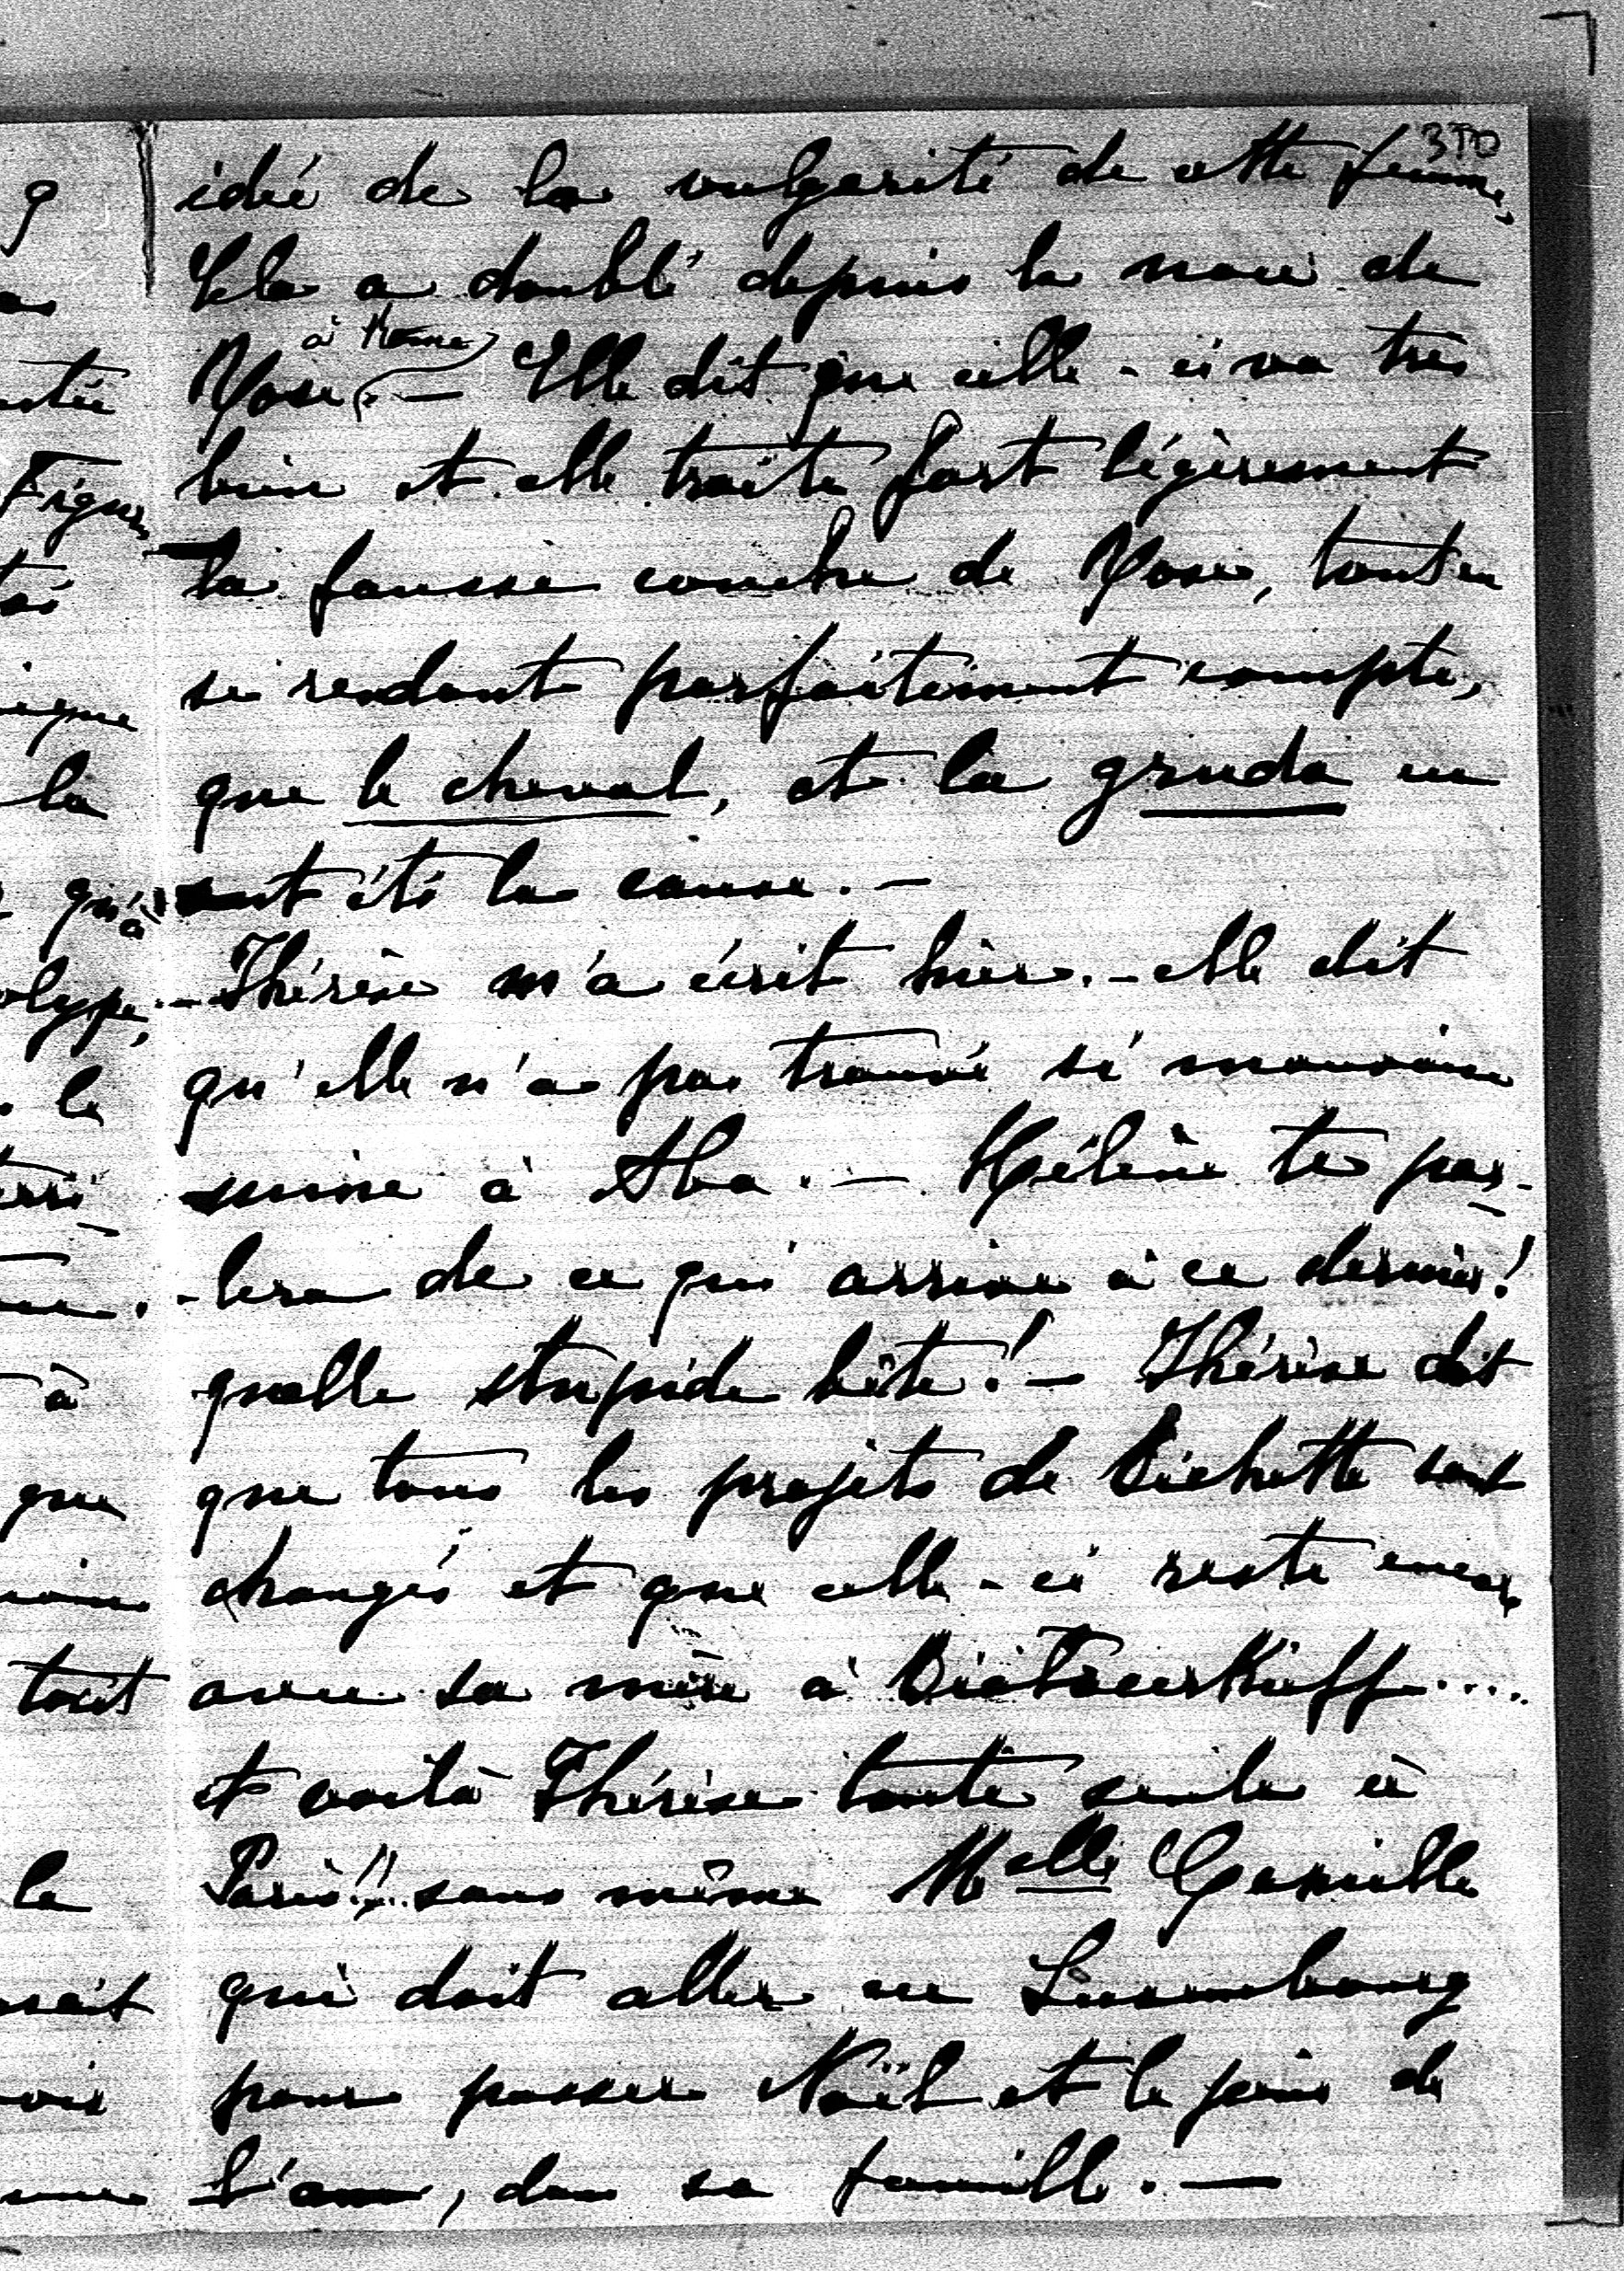 370
idée de la vulgarité de cette femme,
Cela a doublé depuis la noce de
à Rome
Rose. — Elle dit que celle-ci va très
bien et elle traite fort légèrement
la fausse couche de Rose, tout en
se rendant parfaitement compte,
que le cheval, et la gruda en
ont été la cause. —
— Thérèse m'a écrit hier. — elle dit
qu'elle n'a pas trouvé si mauvaise
mine à Aba. — Hélène te par-
-lera de ce qui arrive à ce dernier!
quelle stupide bête! — Thérèse dit
que tous les projets de Bichette sont
changés et que celle-ci reste encore
avec sa mère à ....
et voilà Thérèse toute seule à
Paris!! sans même Melle
qui doit aller en Luxembourg
pour passer Noël et le jour de
l'an, dans sa famille. —